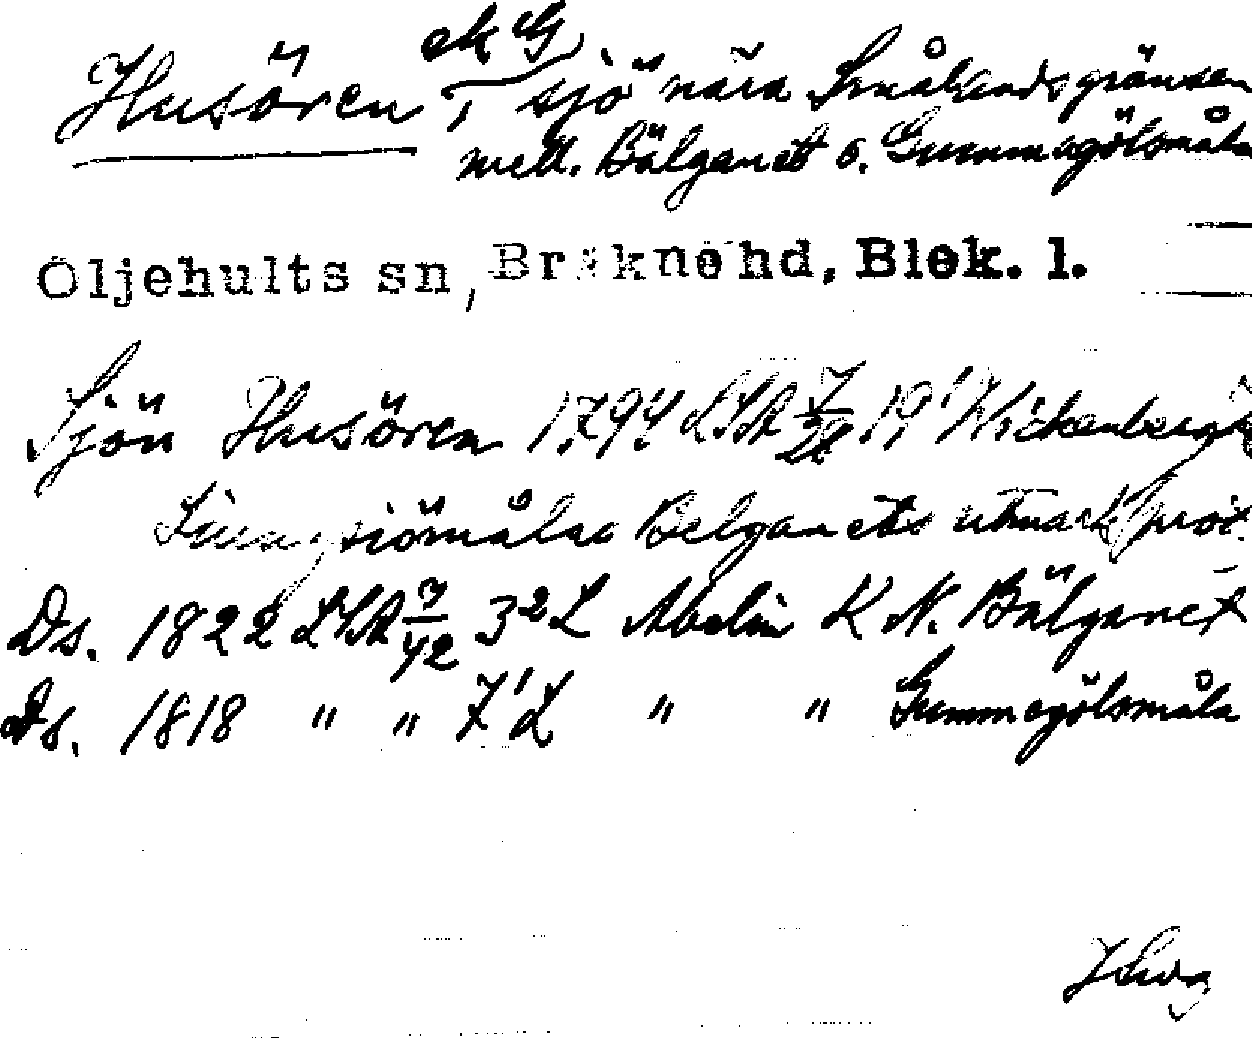 ek G
Husören, sjö nära Smålandsgränsen
mell. Bälganet o. Gummagölsmåla
Öljehults sn, Bräkne hd, Blek. l.
Sjön Husören 1794 LSA 19' Wickenbergs
Belganets utmark prot.
Ds. 1822 LSA 7/42 3²L Abelin K N. Bälganet
Ds. 1818 " " 7'L " " Gummagölsmåla